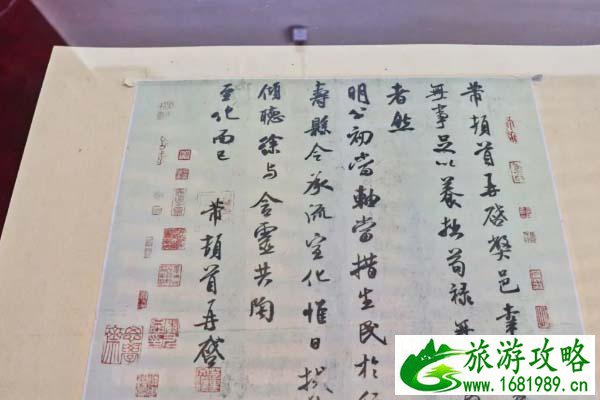 芾頓首再啓弊邑幸
無事足以養拙苟祿無
者然
明公初當軸當措生民於
壽縣令承流宣化惟日拭
傾聽徐與含靈共陶
至化而已
芾頓首再啓
旅游攻略
www.1681989.cn